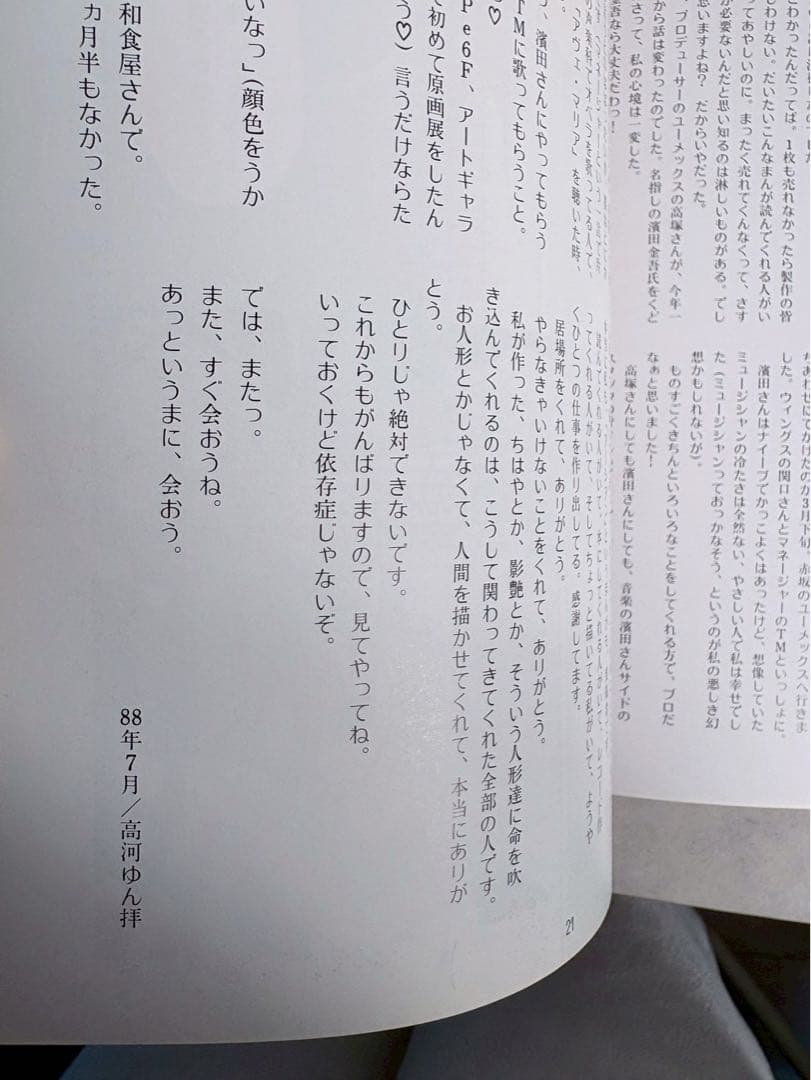 とわかったんだってば。1枚も売れなかったら製作の皆
しわけない。だいたいこんなまんが読んでくれる人がい
ってあやしいのに。まったく売れてくんなくって、さす
が必要ないんだと思い知るのは淋しいものがある。でし
思いますよね? だからいやだった。
、プロデューサーのユーメックスの高塚さんが、今年一
から話は変わったのでした。名指しの濱田金吾氏をくど
さって、私の心境は一変した。
金吾なら大丈夫だわっ!
ちあわせにでかけたのが3月下旬、赤坂のユーメックスへ行きま
した。ウィングスの関口さんとマネージャーのTMといっしょに。
濱田さんはナイーブでかっこよくはあったけど、想像していた
ミュージシャンの冷たさは全然ない、やさしい人で私は幸せでし
た(ミュージシャンっておっかなそう、というのが私の悪しき幻
想かもしれないが)。
ものすごくきちんといろいろなことをしてくれる方で、プロだ
なぁと思いました!
高塚さんにしても濱田さんにしても、音楽の濱田さんサイドの
アヴェ・マリア」を聴いた時、
、濱田さんにやってもらう
TMに歌ってもらうこと。
♡
pe6F、アートギャラ
で初めて原画展をしたん
う♡)言うだけならた
いなっ」(顔色をうか
和食屋さんで。
カ月半もなかった。
ってくれる人がいて、そしてちょっと描いてる私がいて、ようや
くひとつの仕事を作り出してる。感謝してます。
居場所をくれて、ありがとう。
やらなきゃいけないことをくれて、ありがとう。
私が作った、ちはやとか、影艶とか、そういう人形達に命を吹
き込んでくれるのは、こうして関わってきてくれた全部の人です。
お人形とかじゃなくて、人間を描かせてくれて、本当にありが
とう。
ひとりじゃ絶対できないです。
これからもがんばりますので、見てやってね。
いっておくけど依存症じゃないぞ。
では、またっ。
また、すぐ会おうね。
あっというまに、会おう。
88年7月/高河ゆん拝
21